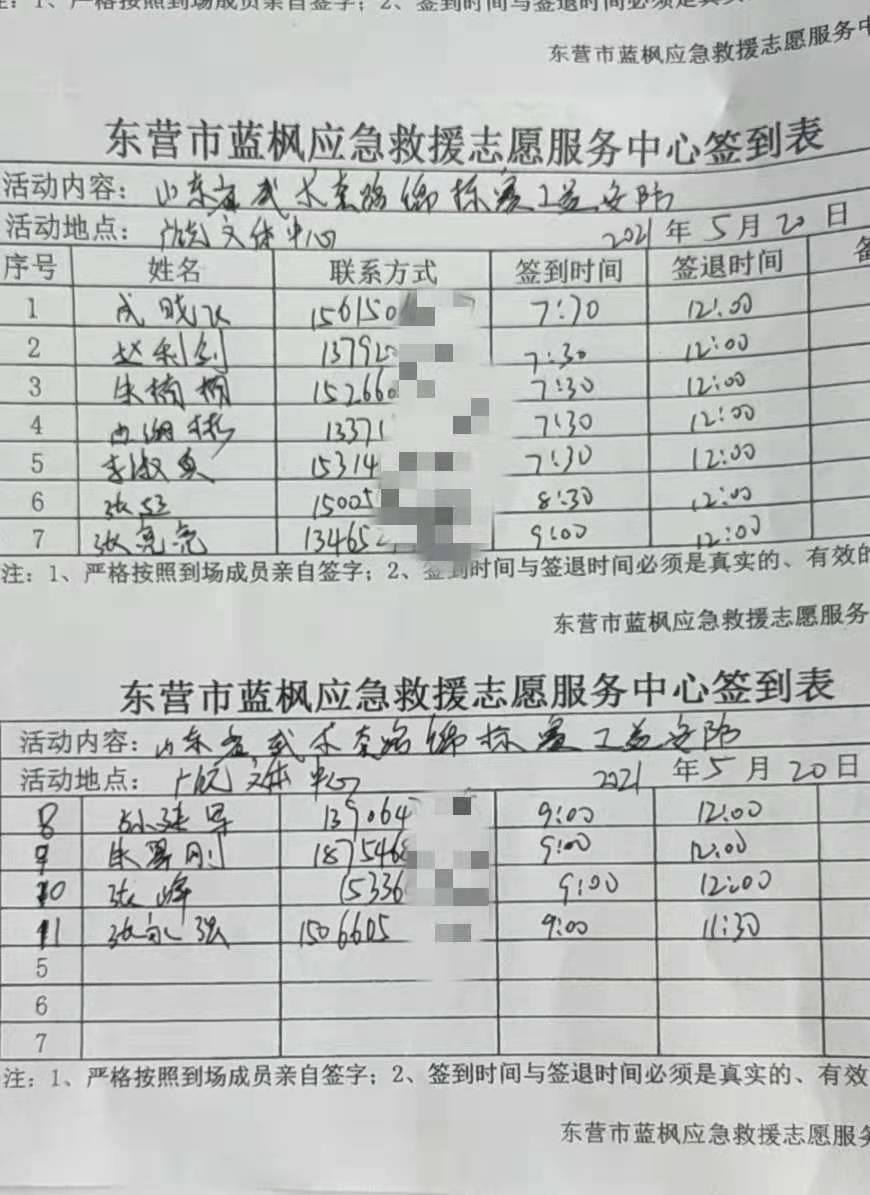 注：1、严格按照到场成员亲自签字；2、签到时间与签退时间必须是真实
东营市蓝枫应急救援志愿服务中
东营市蓝枫应急救援志愿服务中心签到表
活动内容：山东省武术套路锦标赛工益安防
活动地点：广饶文体中心 2021年5月20日
序号 姓名 联系方式 签到时间 签退时间 备
1 成晓飞 156150 7:30 12:00
2 赵利剑 13792 7:30 12:00
3 朱楠楠 152660 7:30 12:00
4 13371 7:30 12:00
5 李淑贞 15314 7:30 12:00
6 张 15005 8:30 12:00
7 张亮亮 13465 9:00 12:00
注：1、严格按照到场成员亲自签字；2、签到时间与签退时间必须是真实的、有效的
东营市蓝枫应急救援志愿服务
东营市蓝枫应急救援志愿服务中心签到表
活动内容：山东省武术套路锦标赛工益安防
活动地点：广饶文体中心 2021年5月20日
8 139064 9:00 12:00
9 朱翠刚 1875468 9:00 12:00
10 张峰 15336 9:00 12:00
11 张永强 1506605 9:00 11:30
5
6
7
注：1、严格按照到场成员亲自签字；2、签到时间与签退时间必须是真实的、有效
东营市蓝枫应急救援志愿服务